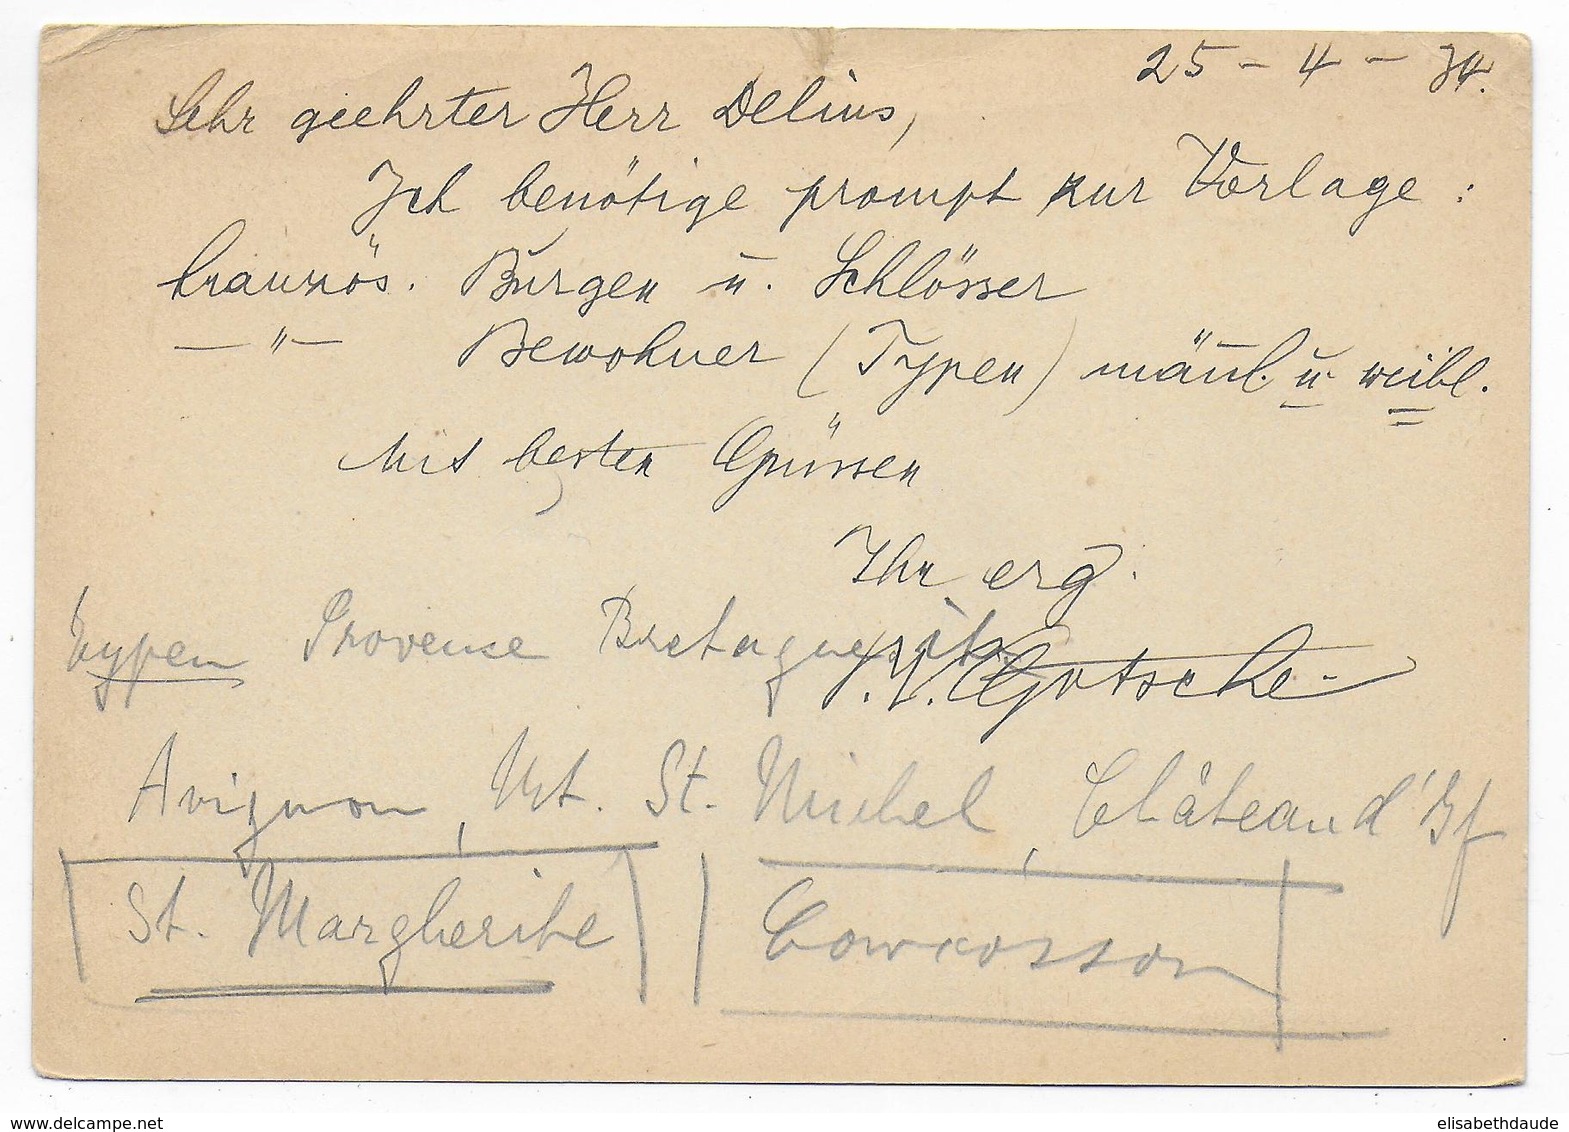 25 - 4 - 34.
Sehr geehrter Herr Delius,
Ich benötige prompt zur Vorlage :
französ. Burgen u. Schlösser
— " — Bewohner (Typen) männl. u. weibl.
Mit besten Grüssen
Ihr erg.
Gotsche
Typen Provence Bretagne
Avignon, Mt. St. Michel, Château d'If
St. Margherite Carcasson
www.delcampe.net
elisabethdaude